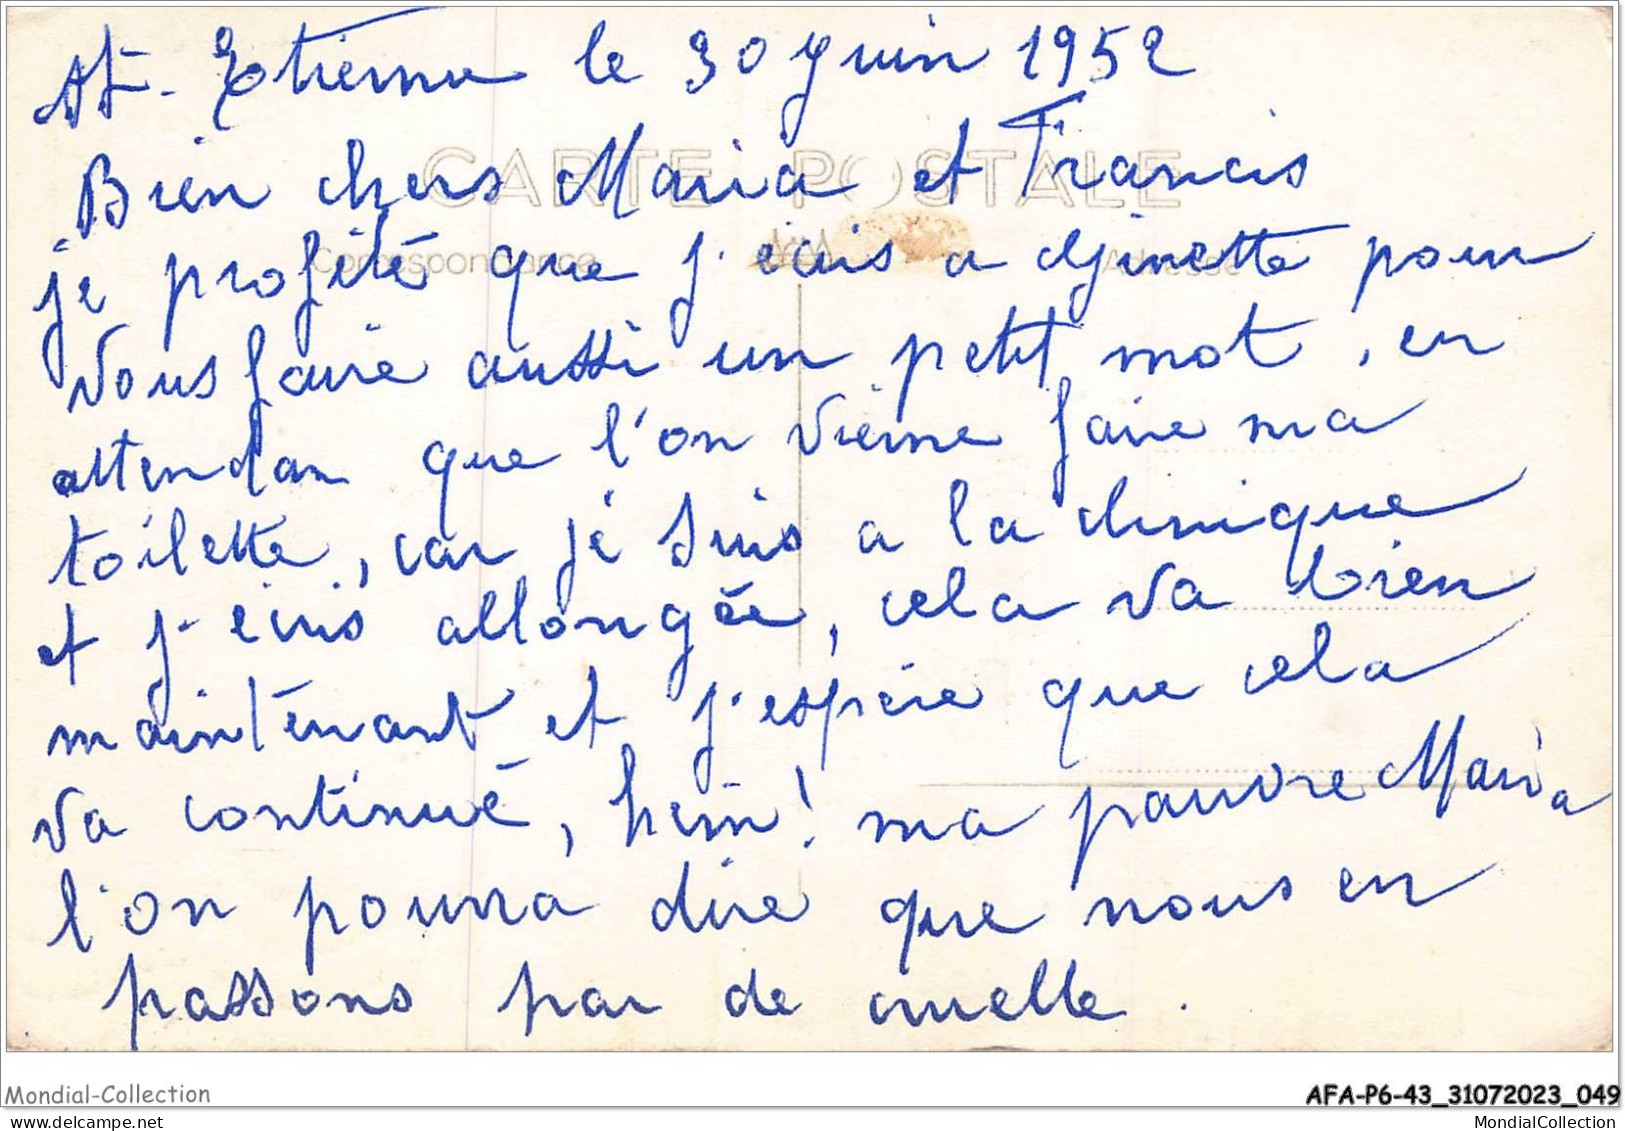 St-Etienne le 30 Juin 1952
CARTE POSTALE
Bien chers Maria et Francis
Correspondance
Adresse
je profité que j'ecris a djinette pour
vous faire aussi un petit mot, en
attendan que l'on vienne faire ma
toilette, car je suis a la clinique
et j'ecris allongée, cela va bien
maintenant et j'espère que cela
va continué, hein! ma pauvre Maria
l'on pourra dire que nous en
passons par de cruelle.
Mondial-Collection
AFA-P6-43_31072023_049
MondialCollection